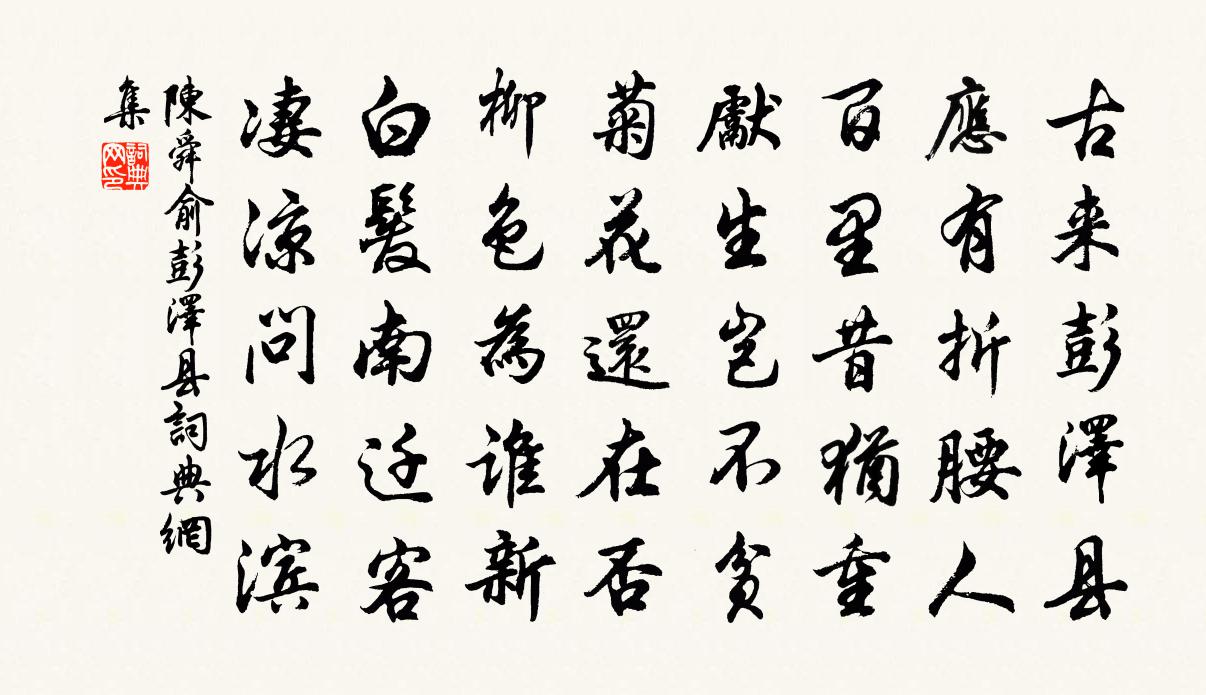 古来彭澤县
應有折腰人
百里昔猶重
獻生岂不贫
菊花還在否
柳色為谁新
白髮南迁客
凄凉问水滨
陳舜俞彭澤县詞典網
集
詞典
网印